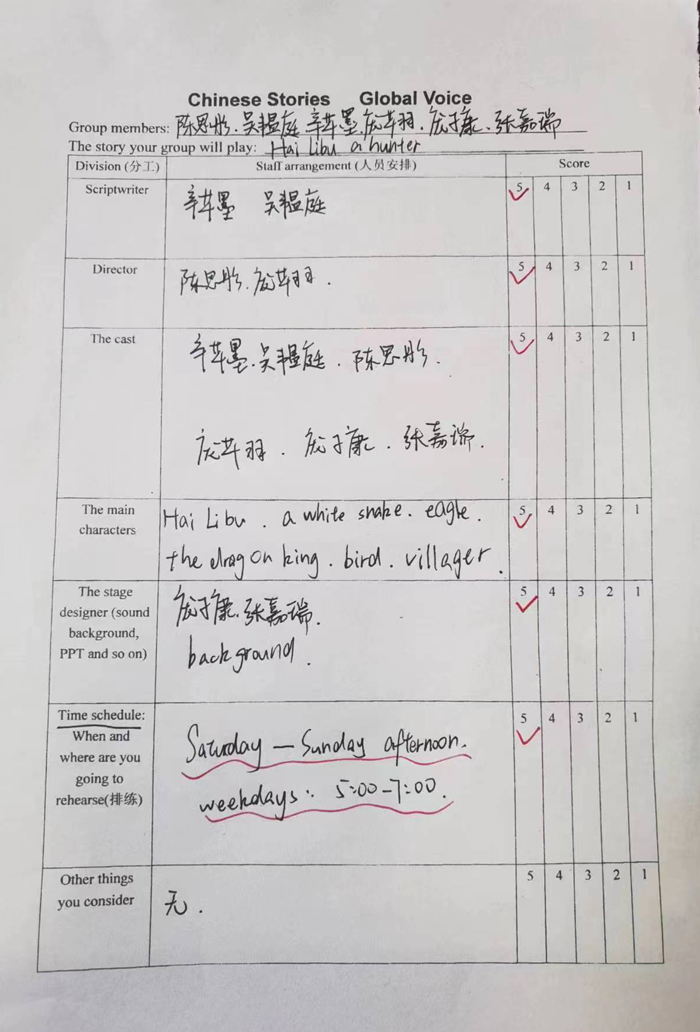 Chinese Stories Global Voice
Group members: 陈思彤.吴韫庭.辛苹墨.庞苹羽.庞子康.张嘉瑞
The story your group will play: Hai Libu a hunter
Division (分工) Staff arrangement (人员安排) Score
Scriptwriter 辛苹墨 吴韫庭 5 4 3 2 1
Director 陈思彤.庞苹羽. 5 4 3 2 1
The cast 辛苹墨.吴韫庭.陈思彤. 5 4 3 2 1
庞苹羽.庞子康.张嘉瑞.
The main Hai Libu. a white snake. eagle. 5 4 3 2 1
characters the dragon king. bird. villager.
The stage 庞子康.张嘉瑞. 5 4 3 2 1
designer (sound
background, background.
PPT and so on)
Time schedule: Saturday — Sunday afternoon. 5 4 3 2 1
When and
where are you weekdays: 5:00-7:00.
going to
rehearse(排练)
Other things 无. 5 4 3 2 1
you consider